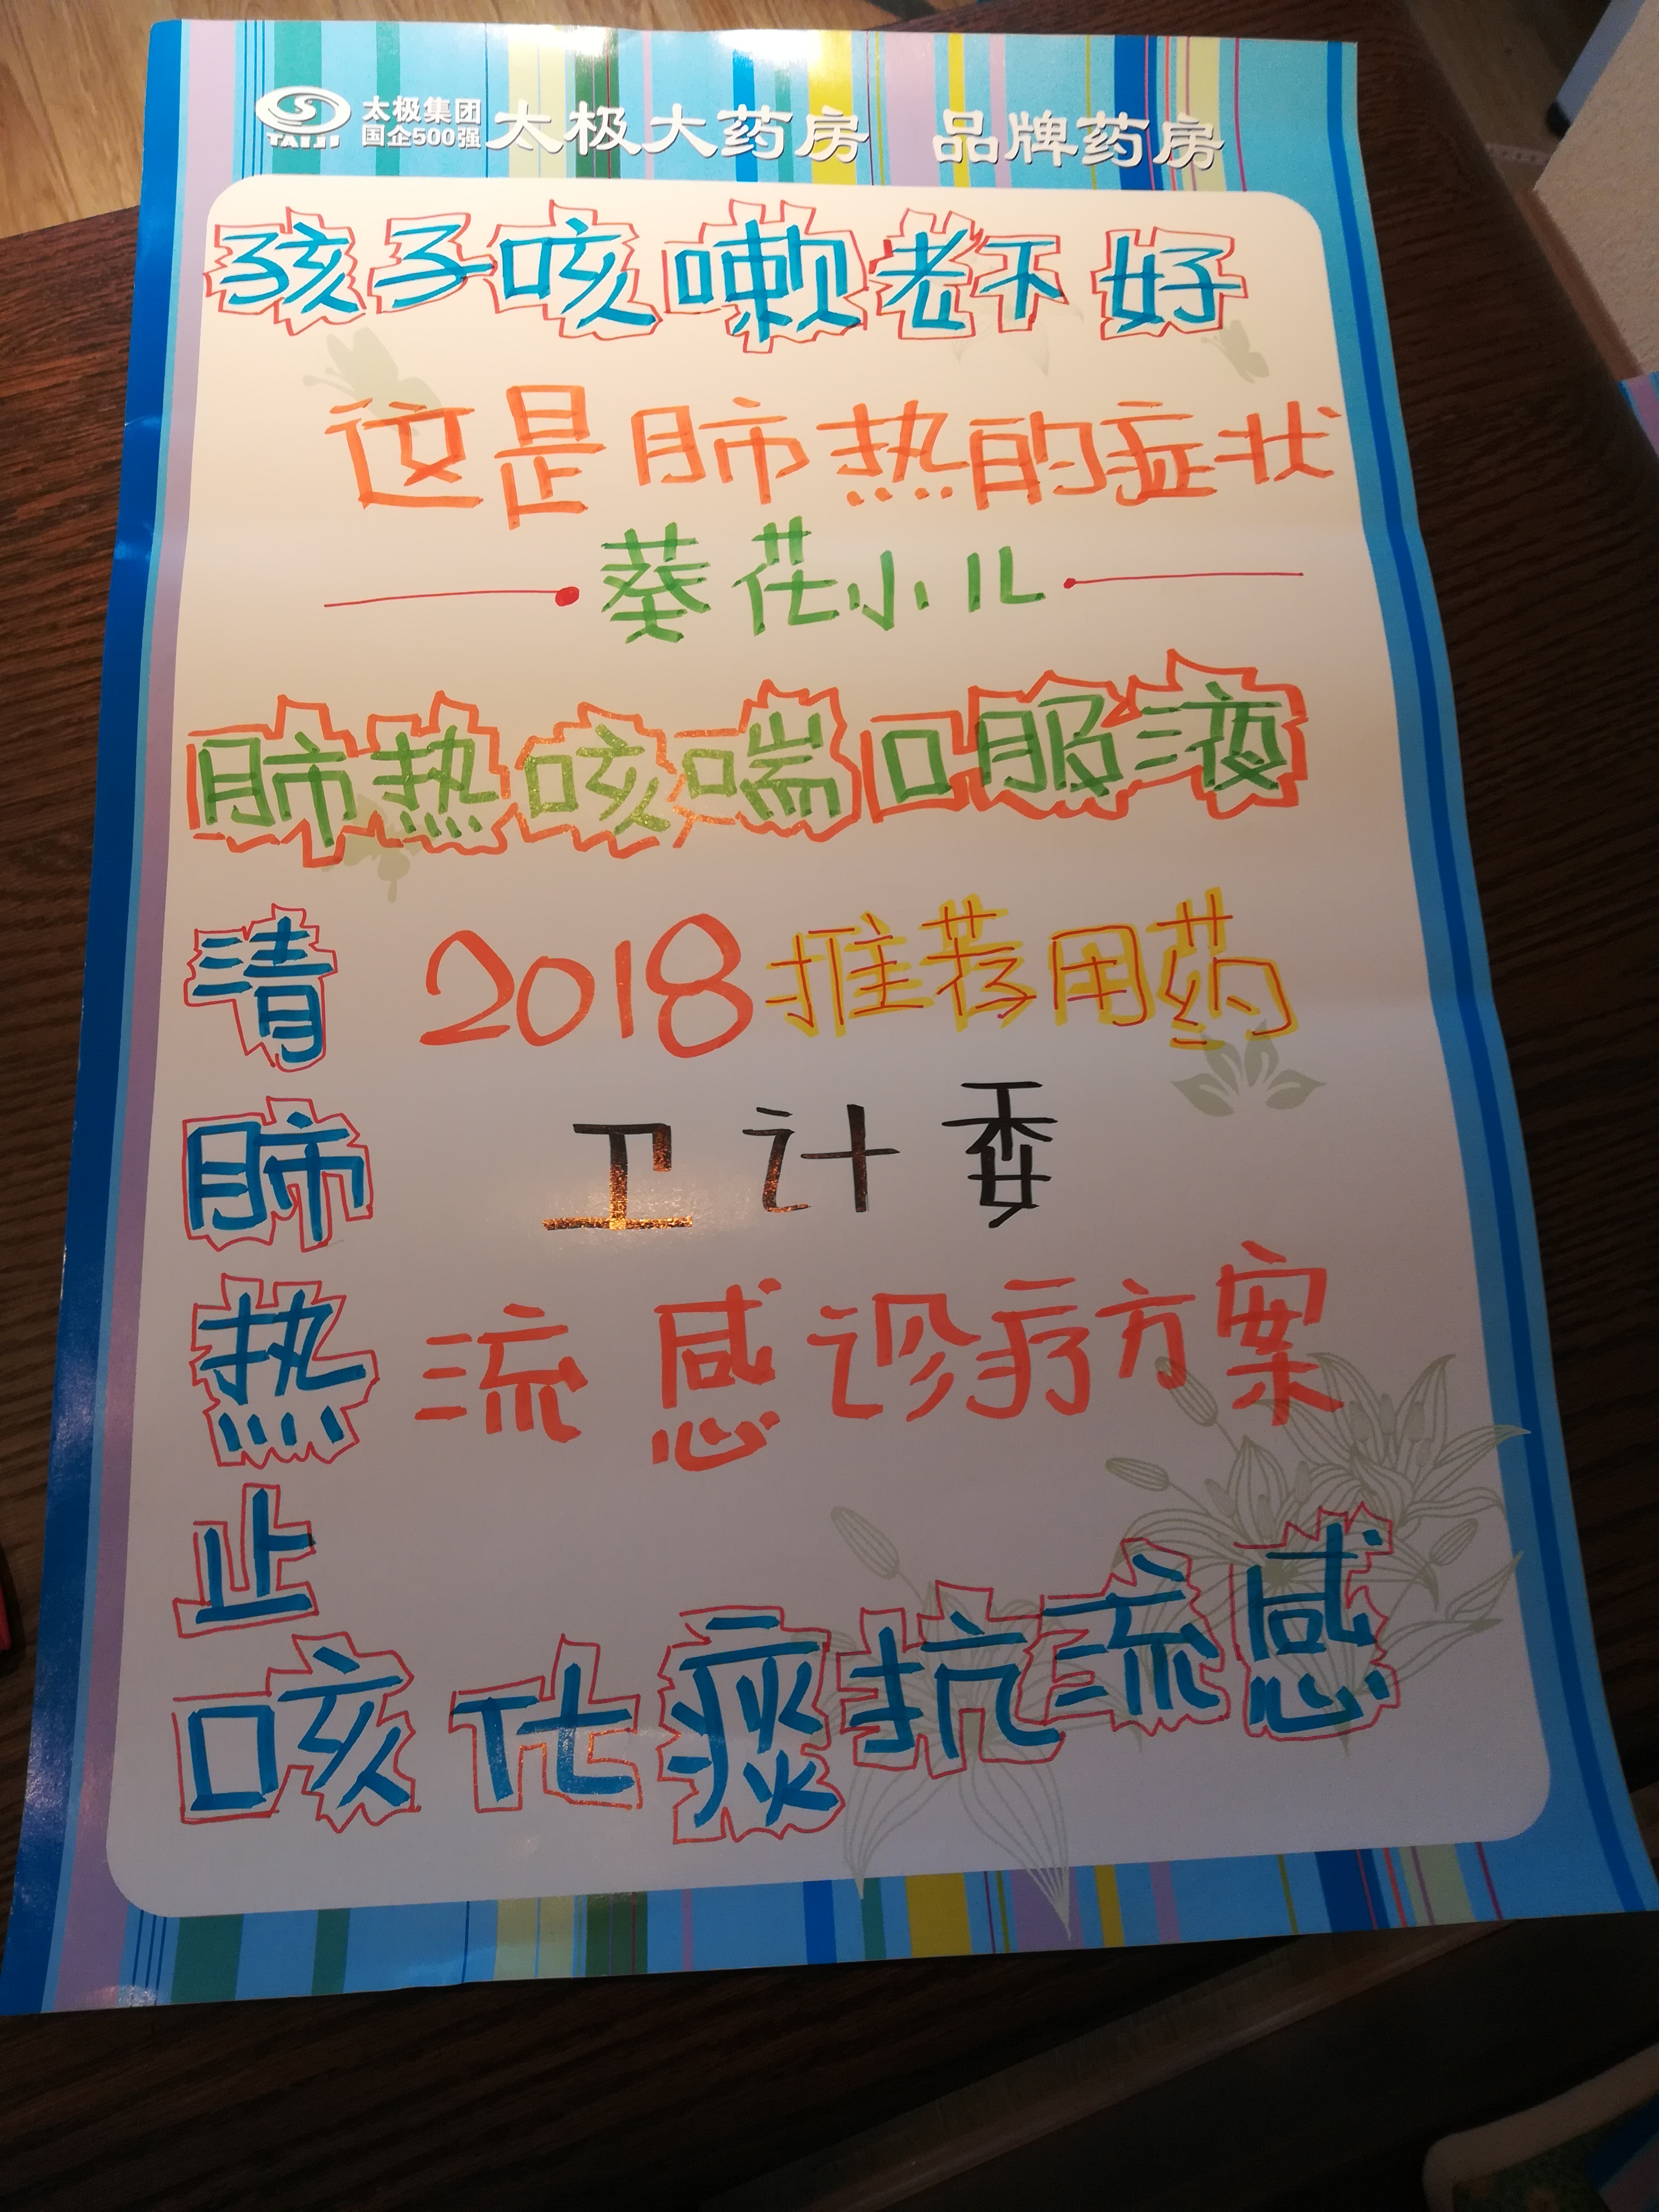 太极集团
国企500强
TAIJI
太极大药房 品牌药房
孩子咳嗽老不好
这是肺热的症状
葵花小儿
肺热咳喘口服液
2018推荐用药
卫计委
流感诊疗方案
清
肺
热
止
咳化痰抗流感